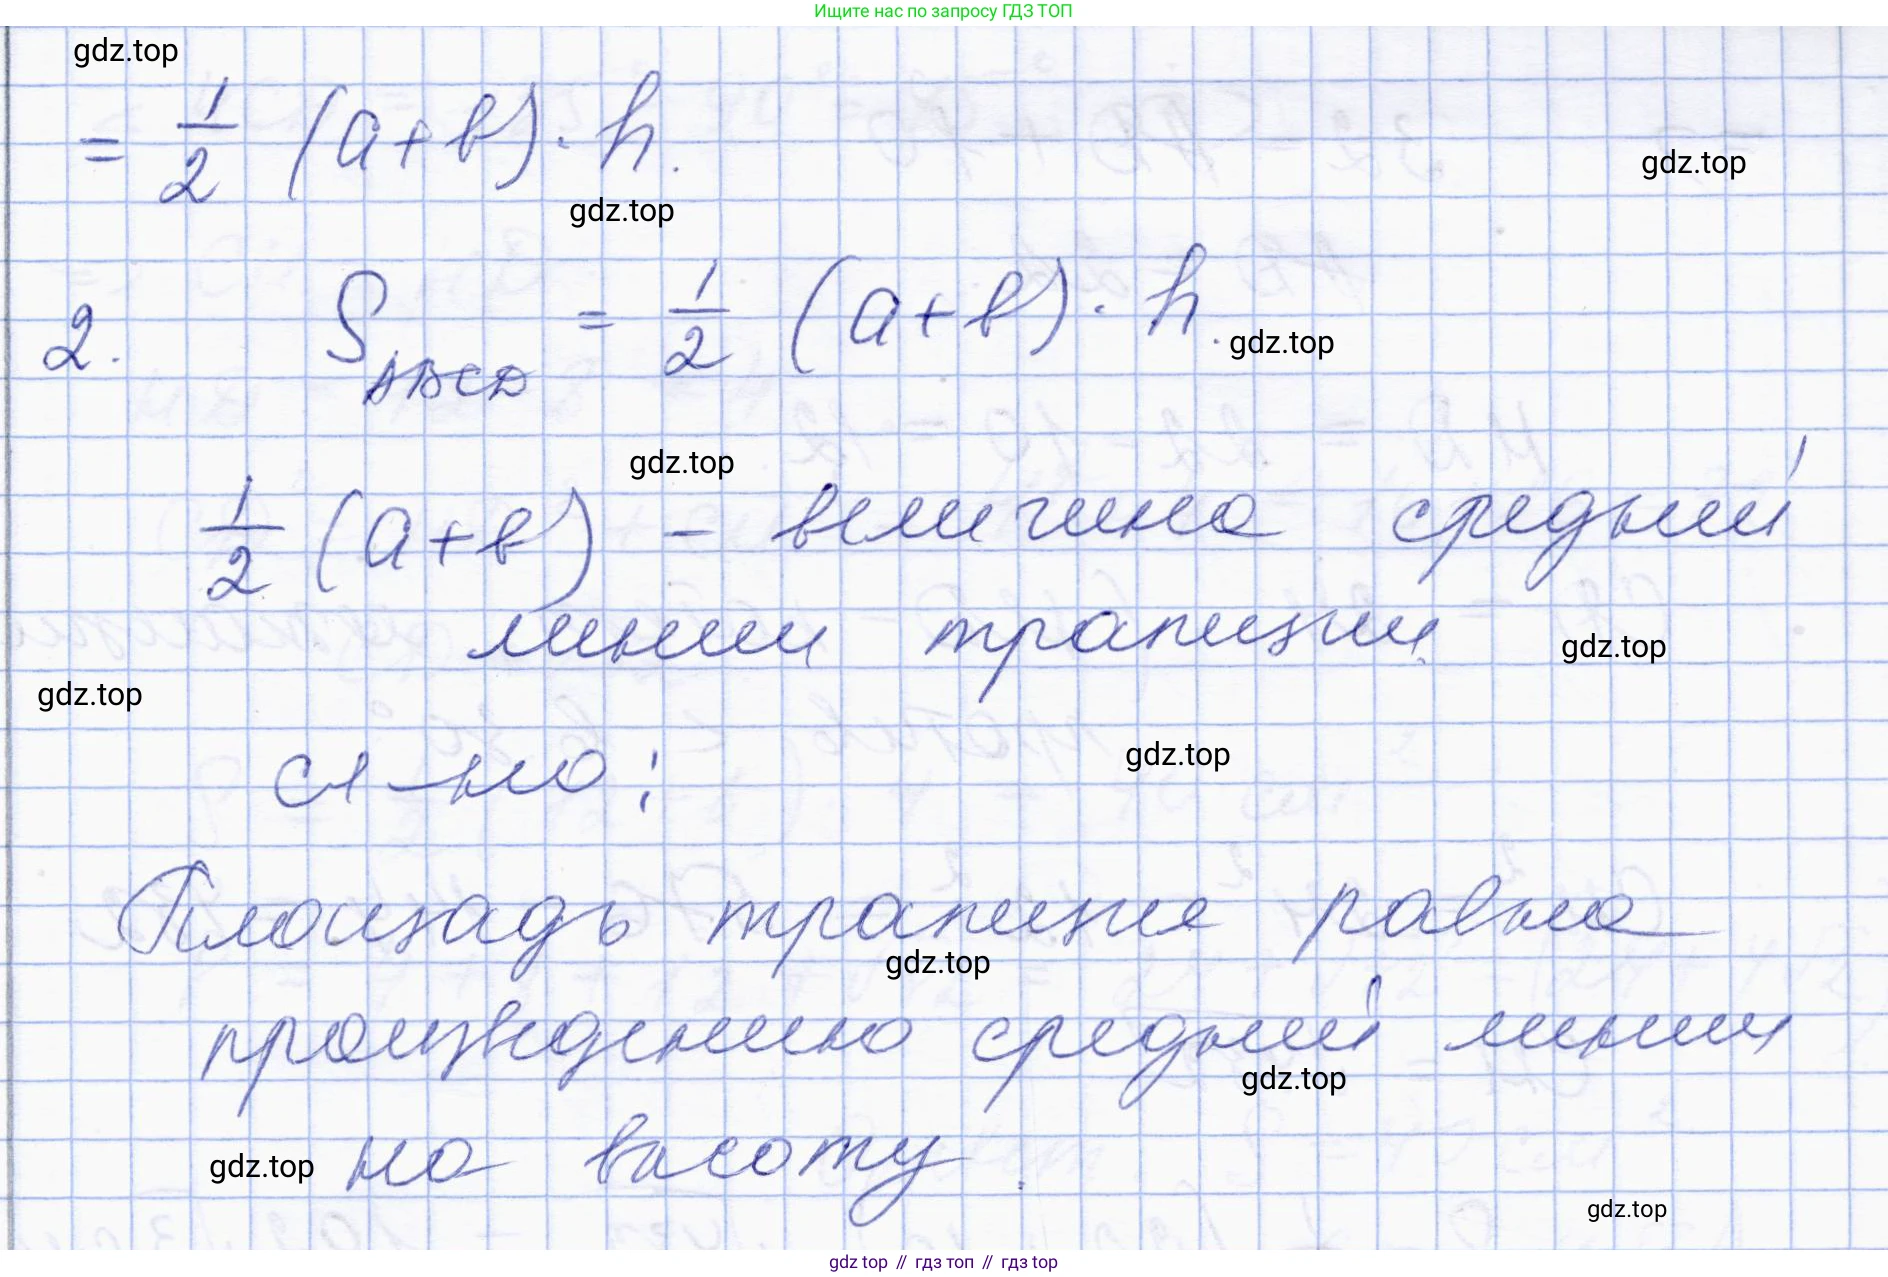 Ищите нас по запросу ГДЗ ТОП
gdz.top
= 1/2 (a+b)·h.
gdz.top
gdz.top
2. S_ABCD = 1/2 (a+b)·h.
gdz.top
gdz.top
1/2 (a+b) - величина средней
линии трапеции
gdz.top
gdz.top
gdz.top
сл-но:
Площадь трапеции равна
gdz.top
произведению средней линии
gdz.top
на высоту.
gdz.top
gdz.top
gdz top // гдз топ // гдз top